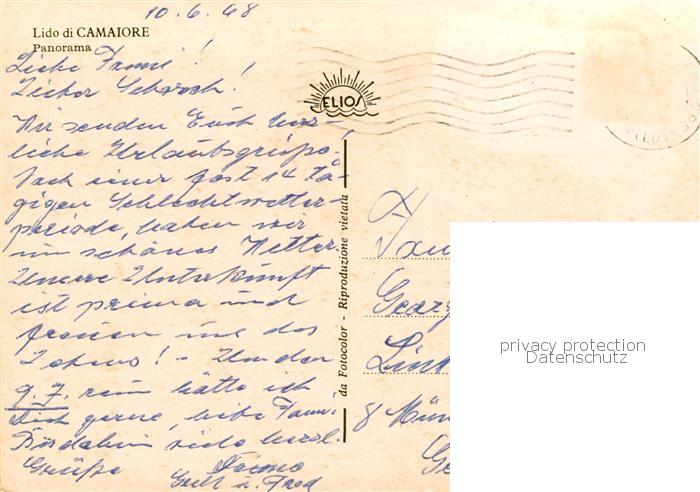 10.6.68
Lido di CAMAIORE
Panorama
Liebe Fanni!
Lieber Schorsch!
Wir senden Euch herz-
liche Urlaubsgrüße.
Nach einer fast 14 tä-
gigen Schlechtwetter-
periode, haben wir
nun schönes Wetter.
Unsere Unterkunft
ist prima und
freuen uns des
Lebens! - Um den
9.7. rum hätte ich
Dich gerne, liebe Fanni.
viele herzl.
Grüße
u. Fred
ELIOS
da Fotocolor - Riproduzione vietata
Georg
8 Mün
privacy protection
Datenschutz